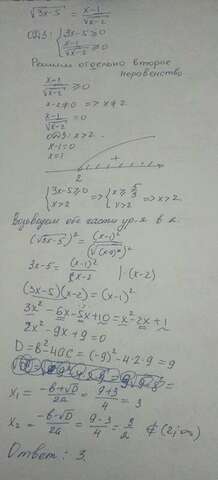 √3x-5 = x-1/√x-2
ОДЗ: {3x-5≥0
x-1/√x-2 ≥0
Решим отдельно второе
неравенство
x-1/√x-2 ≥0
x-2≠0 => x≠2
x-1/√x-2 =0
ОДЗ: x>2
x-1=0
x=1
+
2
{3x-5≥0
x>2 => {x≥5/3
x>2 => x>2.
Возведем обе части ур-я в 2:
(√3x-5)² = (x-1)²/(√x-2)²
3x-5 = (x-1)²/x-2 | (x-2)
(3x-5)(x-2)=(x-1)²
3x²-6x-5x+10=x²-2x+1
2x²-9x+9=0
D=b²-4ac=(-9)²-4·2·9=9
x₁ = -b+√D/2a = 9+3/4 = 3
x₂ = -b-√D/2a = 9-3/4 = 3/2 ∉ (2;∞)
Ответ: 3.